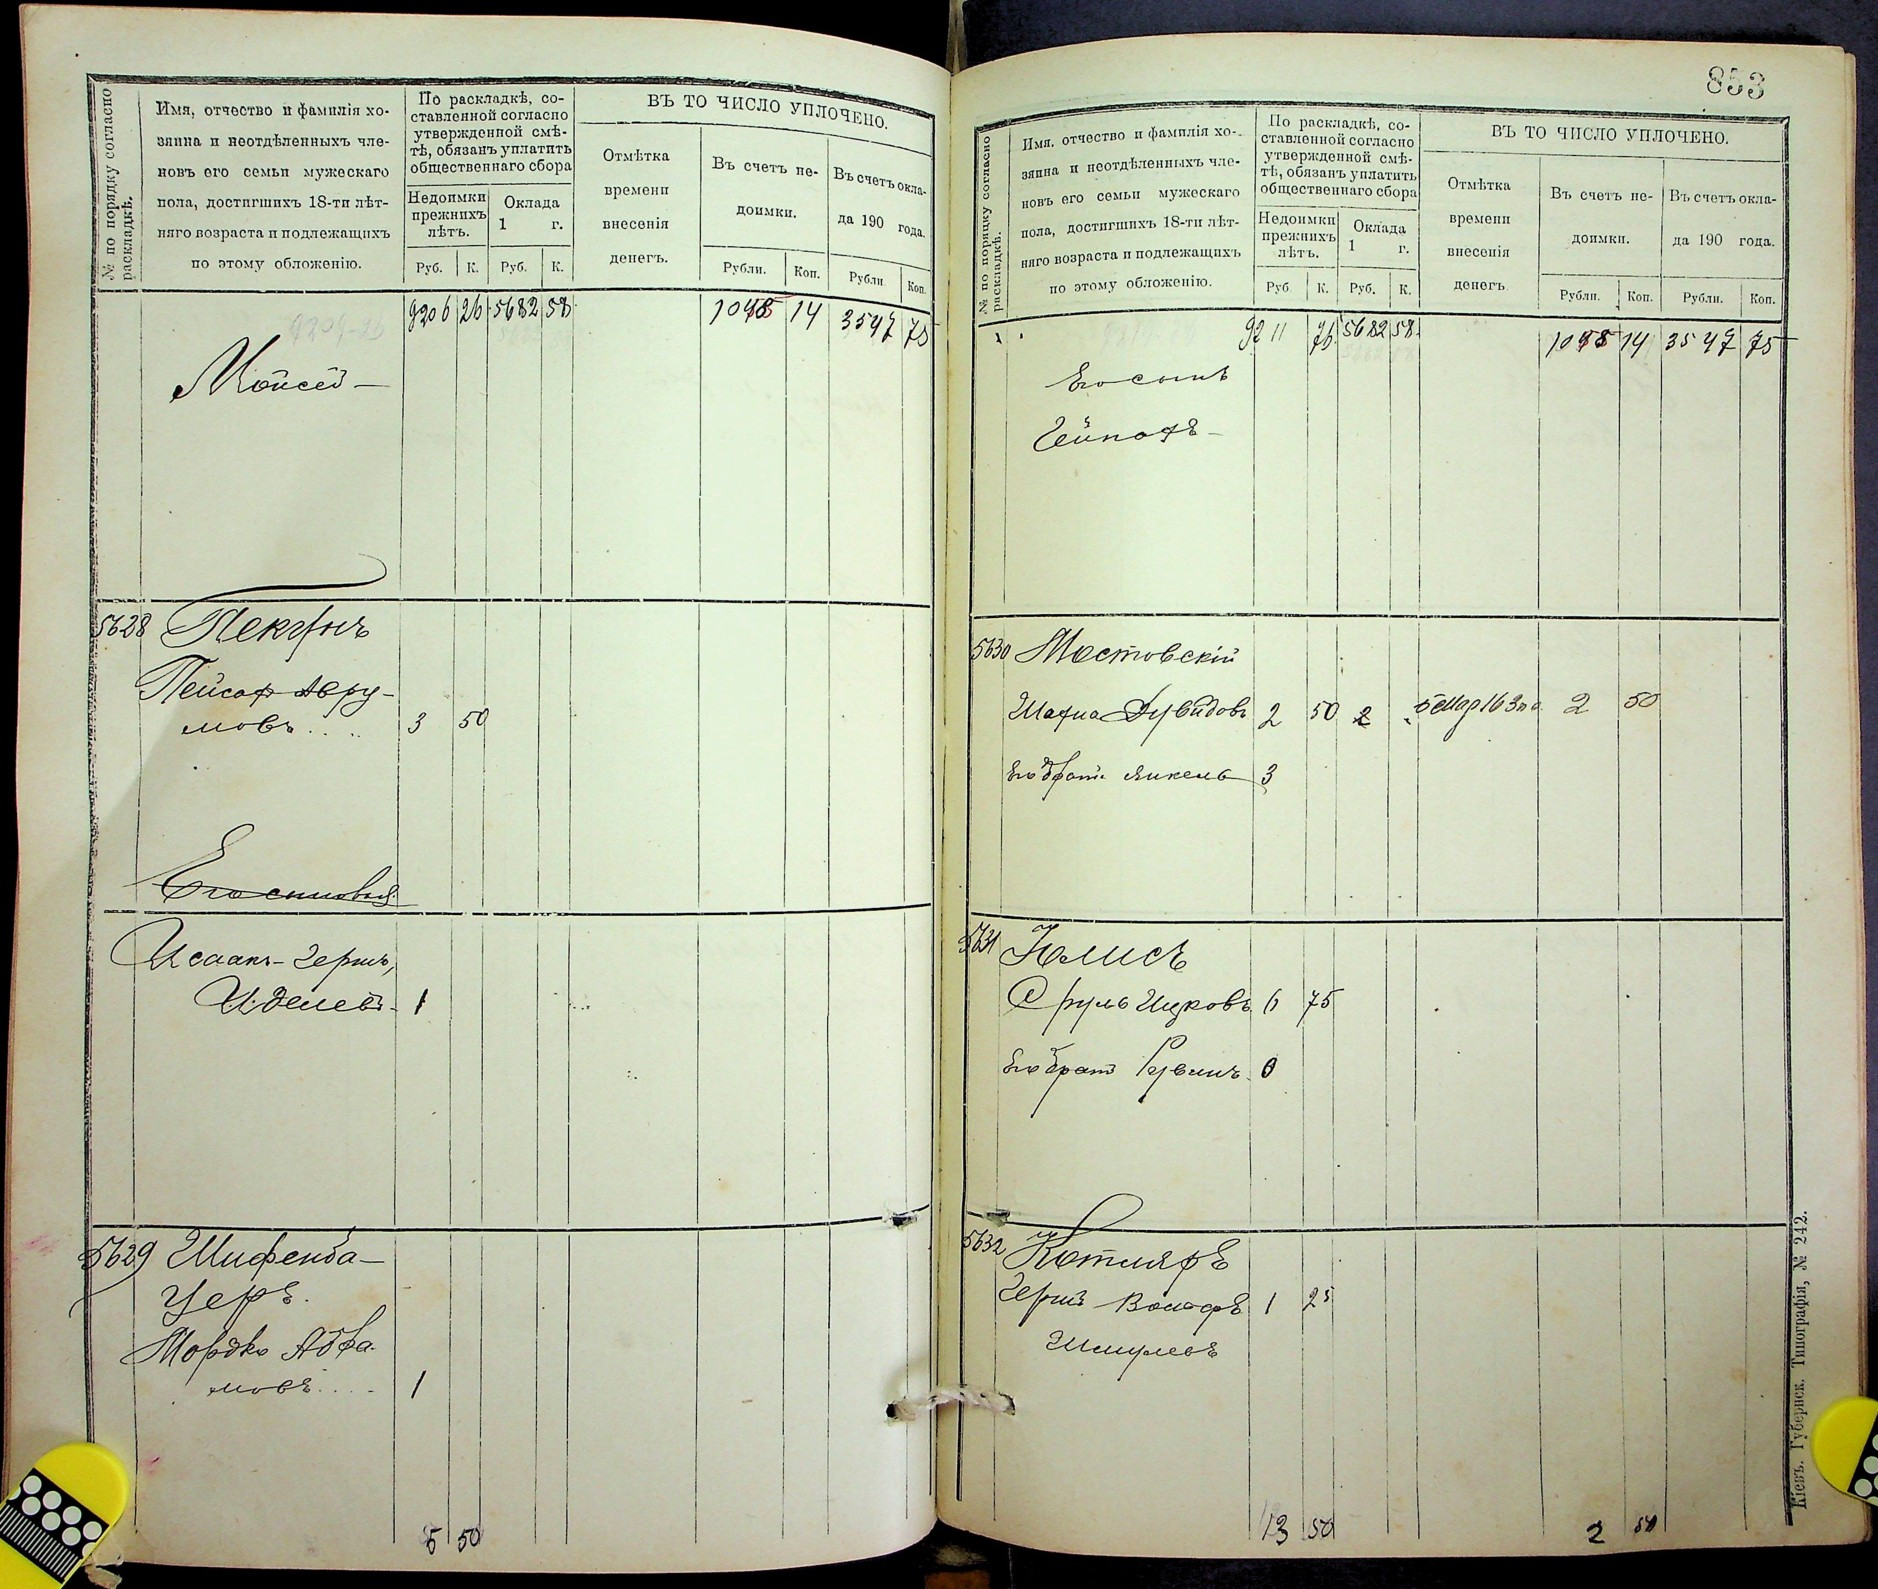 № по порядку согласно
раскладкѣ.
Имя, отчество и фамилія хо-
зяина и неотдѣленныхъ чле-
новъ его семьи мужескаго
пола, достигшихъ 18-ти лѣт-
няго возраста и подлежащихъ
по этому обложенію.
По раскладкѣ, со-
ставленной согласно
утвержденной смѣ-
тѣ, обязанъ уплатить
общественнаго сбора
Недоимки
прежнихъ
лѣтъ.
Оклада
1 г.
Руб. К. Руб. К.
ВЪ ТО ЧИСЛО УПЛОЧЕНО.
Отмѣтка
времени
внесенія
денегъ.
Въ счетъ не-
доимки.
Рубли. Коп.
Въ счетъ окла-
да 190 года.
Рубли Коп.
9206 26 5682 58 14 3547 75
Мойсей —
5628
Пейсах Авру-
мовъ . . . . 3 50
Его сыновья:
Исаакъ-Герш,
Иделев - 1
5629 Шифенба-
уеръ.
Мордко Абра-
мовъ . . . . 1
5 50
853
№ по порядку согласно
раскладкѣ.
Имя, отчество и фамилія хо-
зяина и неотдѣленныхъ чле-
новъ его семьи мужескаго
пола, достигшихъ 18-ти лѣт-
няго возраста и подлежащихъ
по этому обложенію.
По раскладкѣ, со-
ставленной согласно
утвержденной смѣ-
тѣ, обязанъ уплатить
общественнаго сбора
Недоимки
прежнихъ
лѣтъ.
Оклада
1 г.
Руб К. Руб. К.
ВЪ ТО ЧИСЛО УПЛОЧЕНО.
Отмѣтка
времени
внесенія
денегъ.
Въ счетъ не-
доимки.
Рубли. Коп.
Въ счетъ окла-
да 190 года.
Рубли. Коп.
9211 76 5682 58 14 3547 75
Его сынъ
5630 Мостовскій
Шахна Дувидовъ 2 50 2 2 50
Его братъ Янкель 3
5631 Юлисъ
Сруль Ицковъ 6 75
Его братъ Рувинъ 0
5632 Котляръ
Гершъ Вольфъ 1 25
Шмулевъ
13 50 2 50
Кіевъ. Губернск. Типографія, № 242.